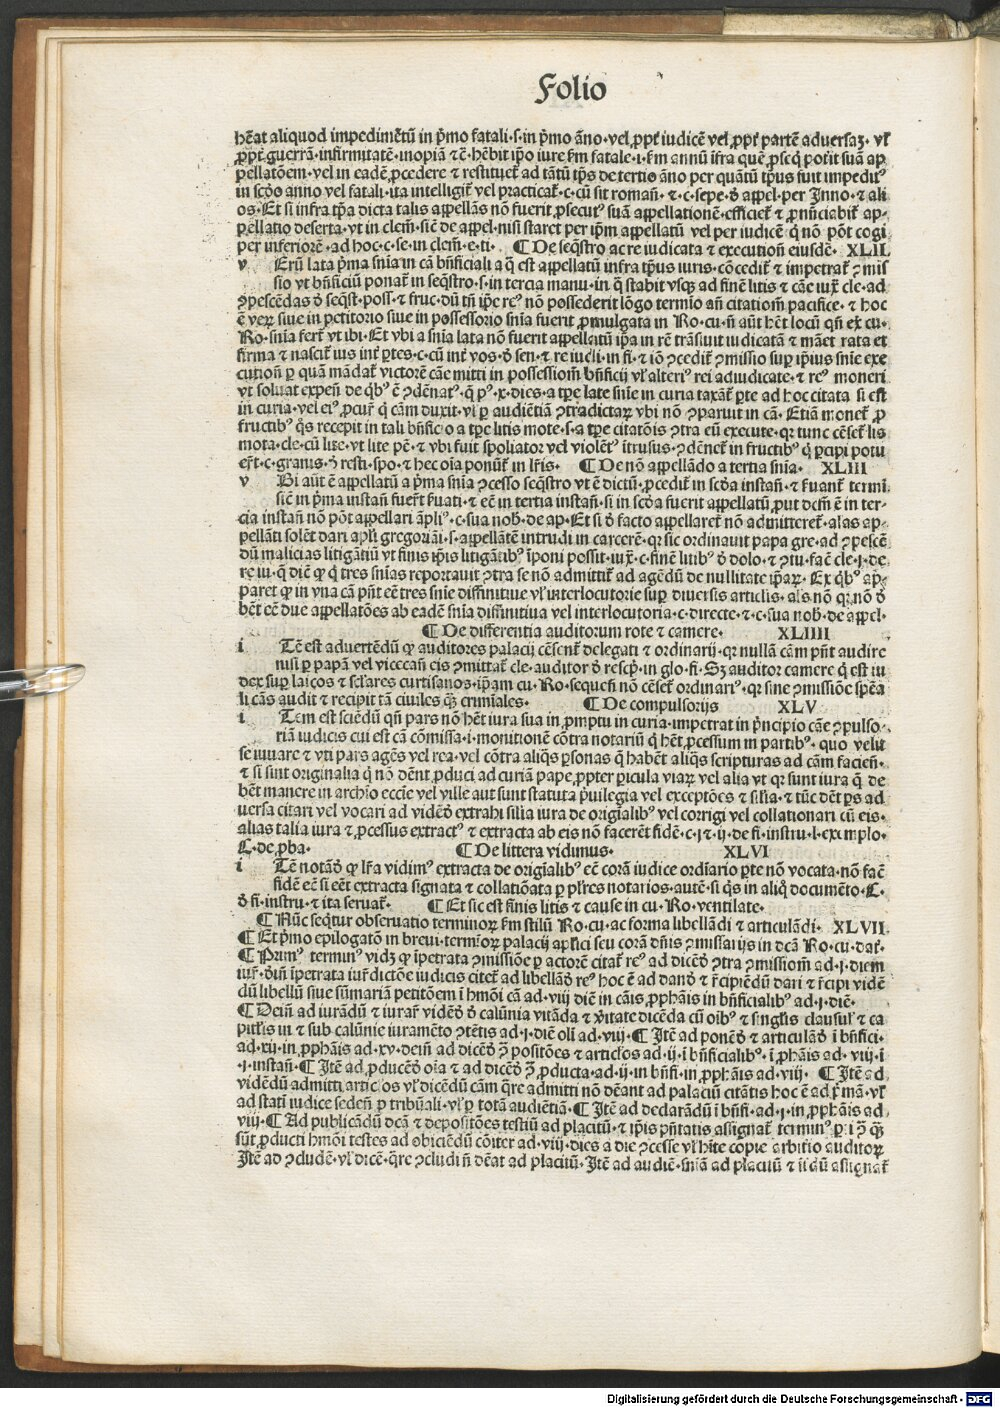 Folio
hēat aliquod impedimētū in p̄mo fatali·s·in p̄mo āno·vel ꝓpt̄ iudicē vel ꝓpt̄ partē aduersaꝫ· vl̄
ꝓpt̄ guerrā·infirmitatē·inopiā ⁊ē·hēbit ip̄o iure ẜm fatale·i·ẜm annū īfra quē ꝓseq̄ poīit suā ap
pellatōem·vel in eadē ꝓcedere ⁊ restituet̄ ad tātū tp̄s de tertio āno per quātū tp̄us fuit impeditꝰ
in scd̄o anno vel fatali·ita intelligit̄ vel practicat̄·c·cū sit romaῆ·⁊·c·sepe·d̄ appel·per Inno·⁊ ali
os·Et si infra tp̄a dicta talis appellās nō fuerit ꝓsecutꝰ suā appellationē·efficiet̄ ⁊ ꝓnūciabit̄ ap-
pellatio deserta·vt in clem̄·siē de appel·nisi staret per ip̄m appellatū vel per iudicē q̄ nō pōt cogi
per inferiorē·ad hoc·c·se in clem̄·e·ti· ¶ De seq̄stro ac re iudicata ⁊ executioῆ eiusdē· XLII
v Erū lata p̄ma snīa in cā bn̄ficiali a q̄ est appellatū infra tp̄us iuris·cōcedit̄ ⁊ impetrat̄ ꝯmis
sio vt bn̄ficiū ponat̄ in seq̄stro·s·in tercia manu·in q̄ stabit vsqꝫ ad finē litis ⁊ cāe iux̄ cle·ad
ꝯpescēdas d̄ seq̄st·poss·⁊ fruc·dū tn̄ ip̄e reꝰ nō possederit lōgo termio an̄ citatiom̄ pacifice·⁊ hoc
ē veꝝ siue in petitorio siue in possessorio snīa fuerit ꝓmulgata in Ro·cu·n̄ aūt hēt locū qn̄ ex cu·
Ro·snīa fert̄ vt ibi·Et vbi a snīa lata nō fuerit appellatū ip̄a in rē trāsiuit iudicatā ⁊ māet rata et
firma ⁊ nascit̄ ius int̄ ꝑtes·c·cū int̄ vos·d̄ sen·⁊ re iudi·in fi·⁊ iō ꝯcedit̄ ꝯmissio suꝑ ip̄ius snīe exe
cutioῆ ꝑ quā mādat̄ victorē cāe mitti in possessiom̄ bn̄ficij vl̄ alteriꝰ rei adiudicate·⁊ reꝰ moneri
vt soluat expeῆ de qb̓ꝰ ē ꝯdēnatꝰ·q̄ pꝰ·x·dies·a tꝑe late snīe in curia taxāt̄ ꝑte ad hoc citata si est
in curia·vel eiꝰ ꝓcur̄ q̄ cām duxit·vl̄ ꝑ audiētiā ꝯtradictaꝝ vbi nō ꝯparuit in cā·Etiā monet̄ ꝓ
fructibꝰ q̄s recepit in tali bn̄ficio a tꝑe litis mote·s·a tꝑe citatōis ꝯtra eū execute·qr tunc cēset̄ lis
mota·cle·cū lite·vt lite pē·⁊ vbi fuit spoliator vel violētꝰ ītrusus·ꝯdēnet̄ in fructibꝰ q̄ ꝑcipi potu
er̄t·c·grauis·d̄ resti·spo·⁊ hec oīa ponūt̄ in lr̄is· ¶ De nō appellādo a tertia snīa· XLIII
v Bi aūt ē appellatū a p̄ma snīa ꝯcesso seq̄stro vt ē dictū·ꝓcedit̄ in scd̄a instaῆ·⁊ ẜuant̄ termī
siē in p̄ma instaῆ fuer̄t ẜuati·⁊ eē in tertia instaῆ·si in scd̄a fuerit appellatū ꝓut dc̄m ē in ter-
cia instaῆ nō pōt appellari āpliꝰ·c·sua nob·de ap·Et si d̄ facto appellaret̄ nō admitteret̄·alas ap-
pellāti solēt dari apl̄i gregoriāi·s·appellātē intrudi in carcerē·qr sic ordinauit papa gre·ad ꝯpescē
dū malicias litigātiū vt finis ip̄is litigātibꝰ īponi possit·iux̄·c·finē litibꝰ d̄ dolo·⁊ ꝯtu·faē cle·j·de
re iu·q̄ diē ꝙ q̄ tres snīas reportauit ꝯtra se nō admittit̄ ad agēdū de nullitate ip̄aꝝ· Ex qb̓ꝰ ap-
paret ꝙ in vna cā pn̄t eē tres snīe diffinitiue vl̄ interlocutorie suꝑ diuersis articlis·als nō qr nō d̄
bēt eē due appellatōes ab eadē snīa diffinitiua vel interlocutoria·c·directe·⁊·c·sua nob·de appel·
¶ De differentia auditorum rote ⁊ camere· XLIIII
i Tē est aduertēdū ꝙ auditores palacij cēsent̄ delegati ⁊ ordinarij·qr nullā cām pn̄t audire
nisi ꝑ papā vel vicecaῆ eis ꝯmittat̄ cle·auditor d̄ rescp̄·in glo·fi·Sꝫ auditor camere q̄ est iu
dex suꝑ laicos ⁊ sclares curtisanos·ip̄am cu·Ro·sequeῆ nō cēset̄ ordinariꝰ·qr sine ꝯmissiōe sp̄ea
li cās audit ⁊ recipit tā ciuiles qꝫ crimīales· ¶ De compulsorijs XLV
i Tem est sciēdū qn̄ pars nō hēt iura sua in ꝓmptu in curia·impetrat in p̄ncipio cāe ꝯpulso-
riā iudicis cui est cā cōmissa·i·monitionē cōtra notariū q̄ hēt ꝓcessum in partibꝰ· quo velit
se iuuare ⁊ vti pars agēs vel rea·vel cōtra aliq̄s ꝑsonas q̄ habēt aliq̄s scripturas ad cām facieῆ·
⁊ si sint originalia q̄ nō dēnt ꝓduci ad curiā pape ꝓpter ꝑicula viaꝝ vel alia vt qr sunt iura q̄ de
bēt manere in archio eccīe vel ville aut sunt statuta p̄uilegia vel exceptōes ⁊ silīa·⁊ tūc dēt ꝑs ad
uersa citari vel vocari ad vidēd̄ extrahi silīa iura de origīalibꝰ vel corrigi vel collationari cū eis·
alias talia iura ⁊ ꝓcessus extractꝰ ⁊ extracta ab eis nō facerēt fidē·c·j·⁊·ij·de fi·instru·l·exi mplo·
C·de ꝓba· ¶ De littera vidimus· XLVI
i Tē notād̄ ꝙ lr̄a vidimꝰ extracta de origīalibꝰ eē corā iudice ordīario ꝑte nō vocata·nō faē
fidē eē si eēt extracta signata ⁊ collatiōata ꝑ pl̄res notarios·autē·si q̄s in aliq̄ documēto·C·
d̄ fi·instru·⁊ ita seruat̄· ¶ Et sic est finis litis ⁊ cause in cu·Ro·ventilate·
¶ Nūc seq̄tur obseruatio terminoꝝ ẜm stilū Ro·cu·ac forma libellādi ⁊ articulādi· XLVII
¶ Et p̄mo epilogatō in breui·termīoꝝ palacij ap̄lici seu corā dn̄is ꝯmissarijs in dc̄ā Ro·cu·dat̄·
¶ Primꝰ terminꝰ vidꝫ ꝙ īpetrata ꝯmissiōe ꝑ actorē citat̄ reꝰ ad dicēd̄ ꝯtra ꝯmissiom̄ ad·j·diem
iur̄·d̄iῆ īpetrata iur̄dictōe iudicis citet̄ ad libellād̄ reꝰ hoc ē ad dand̄ ⁊ r̄cipiēdū dari ⁊ r̄cipi vidē
dū libellū siue sūmariā petitōem ī hmōi cā ad·viij diē in cāis ꝓphāis in bn̄ficialibꝰ ad·j·diē·
¶ Deiῆ ad iurādū ⁊ iurar̄ vidēd̄ d̄ calūnia vitāda ⁊ v̄itate dicēda cū oībꝰ ⁊ singl̄is clausul̄ ⁊ ca
pitl̄is in ⁊ sub calūnie iuramēto ꝯtētis ad·j·diē olī ad·viij·¶ Itē ad ponēd̄ ⁊ articulād̄ ī bn̄fici·
ad·xij·in ꝓphāis ad·xv·deiῆ ad dicēd̄ ꝯ̄ positōes ⁊ articl̄os ad·ij·ī bn̄ficialibꝰ·ī ꝓhāis ad·viij·ī
·i·instaῆ·¶ Itē ad ꝓducēd̄ oīa ⁊ ad dicēd̄ ꝯ̄ ꝓducta·ad·ij·in bn̄fi·in ꝓphāis·ad·viij· ¶ Itē ad
vidēdū admitti articl̄os vl̄ dicēdū cām q̄re admitti nō dēant ad palaciū citātis hoc ē ad p̄mā·vl̄
ad statī iudice sedeῆ ꝑ tribūali·vl̄ ꝑ totā audiētiā·¶ Itē ad declarādū ī bn̄fi·ad·j·in ꝓphāis ad
viij·¶ Ad publicādū dcā ⁊ depositōes testiū ad placitū·⁊ ip̄is pn̄tatis assignat̄ terminꝰ ꝑ·i ꝯ̄ qꝫ
sūt ꝓducti hmōi testes ad obiciēdū cōiter ad·viij·dies a die ꝯcesse vl̄ hīte copie arbitio auditoꝝ
Itē ad ꝯdudē·vl̄ dicē·q̄re ꝯcludi n̄ dēat ad placitū·Itē ad audiē·snīā ad placitū ⁊ īi dū assignat̄
Digitalisierung gefördert durch die Deutsche Forschungsgemeinschaft - DFG